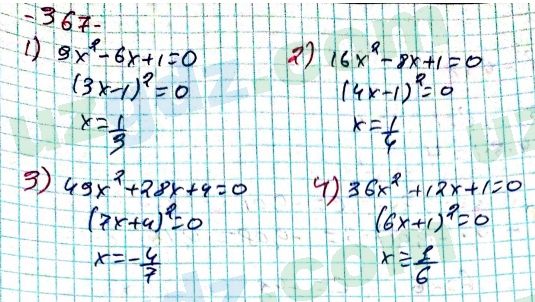 -367-
1) 9x²-6x+1=0
(3x-1)²=0
x=1/3
2) 16x²-8x+1=0
(4x-1)²=0
x=1/4
3) 49x²+28x+4=0
(7x+4)²=0
x=-4/7
4) 36x²+12x+1=0
(6x+1)²=0
x=1/6